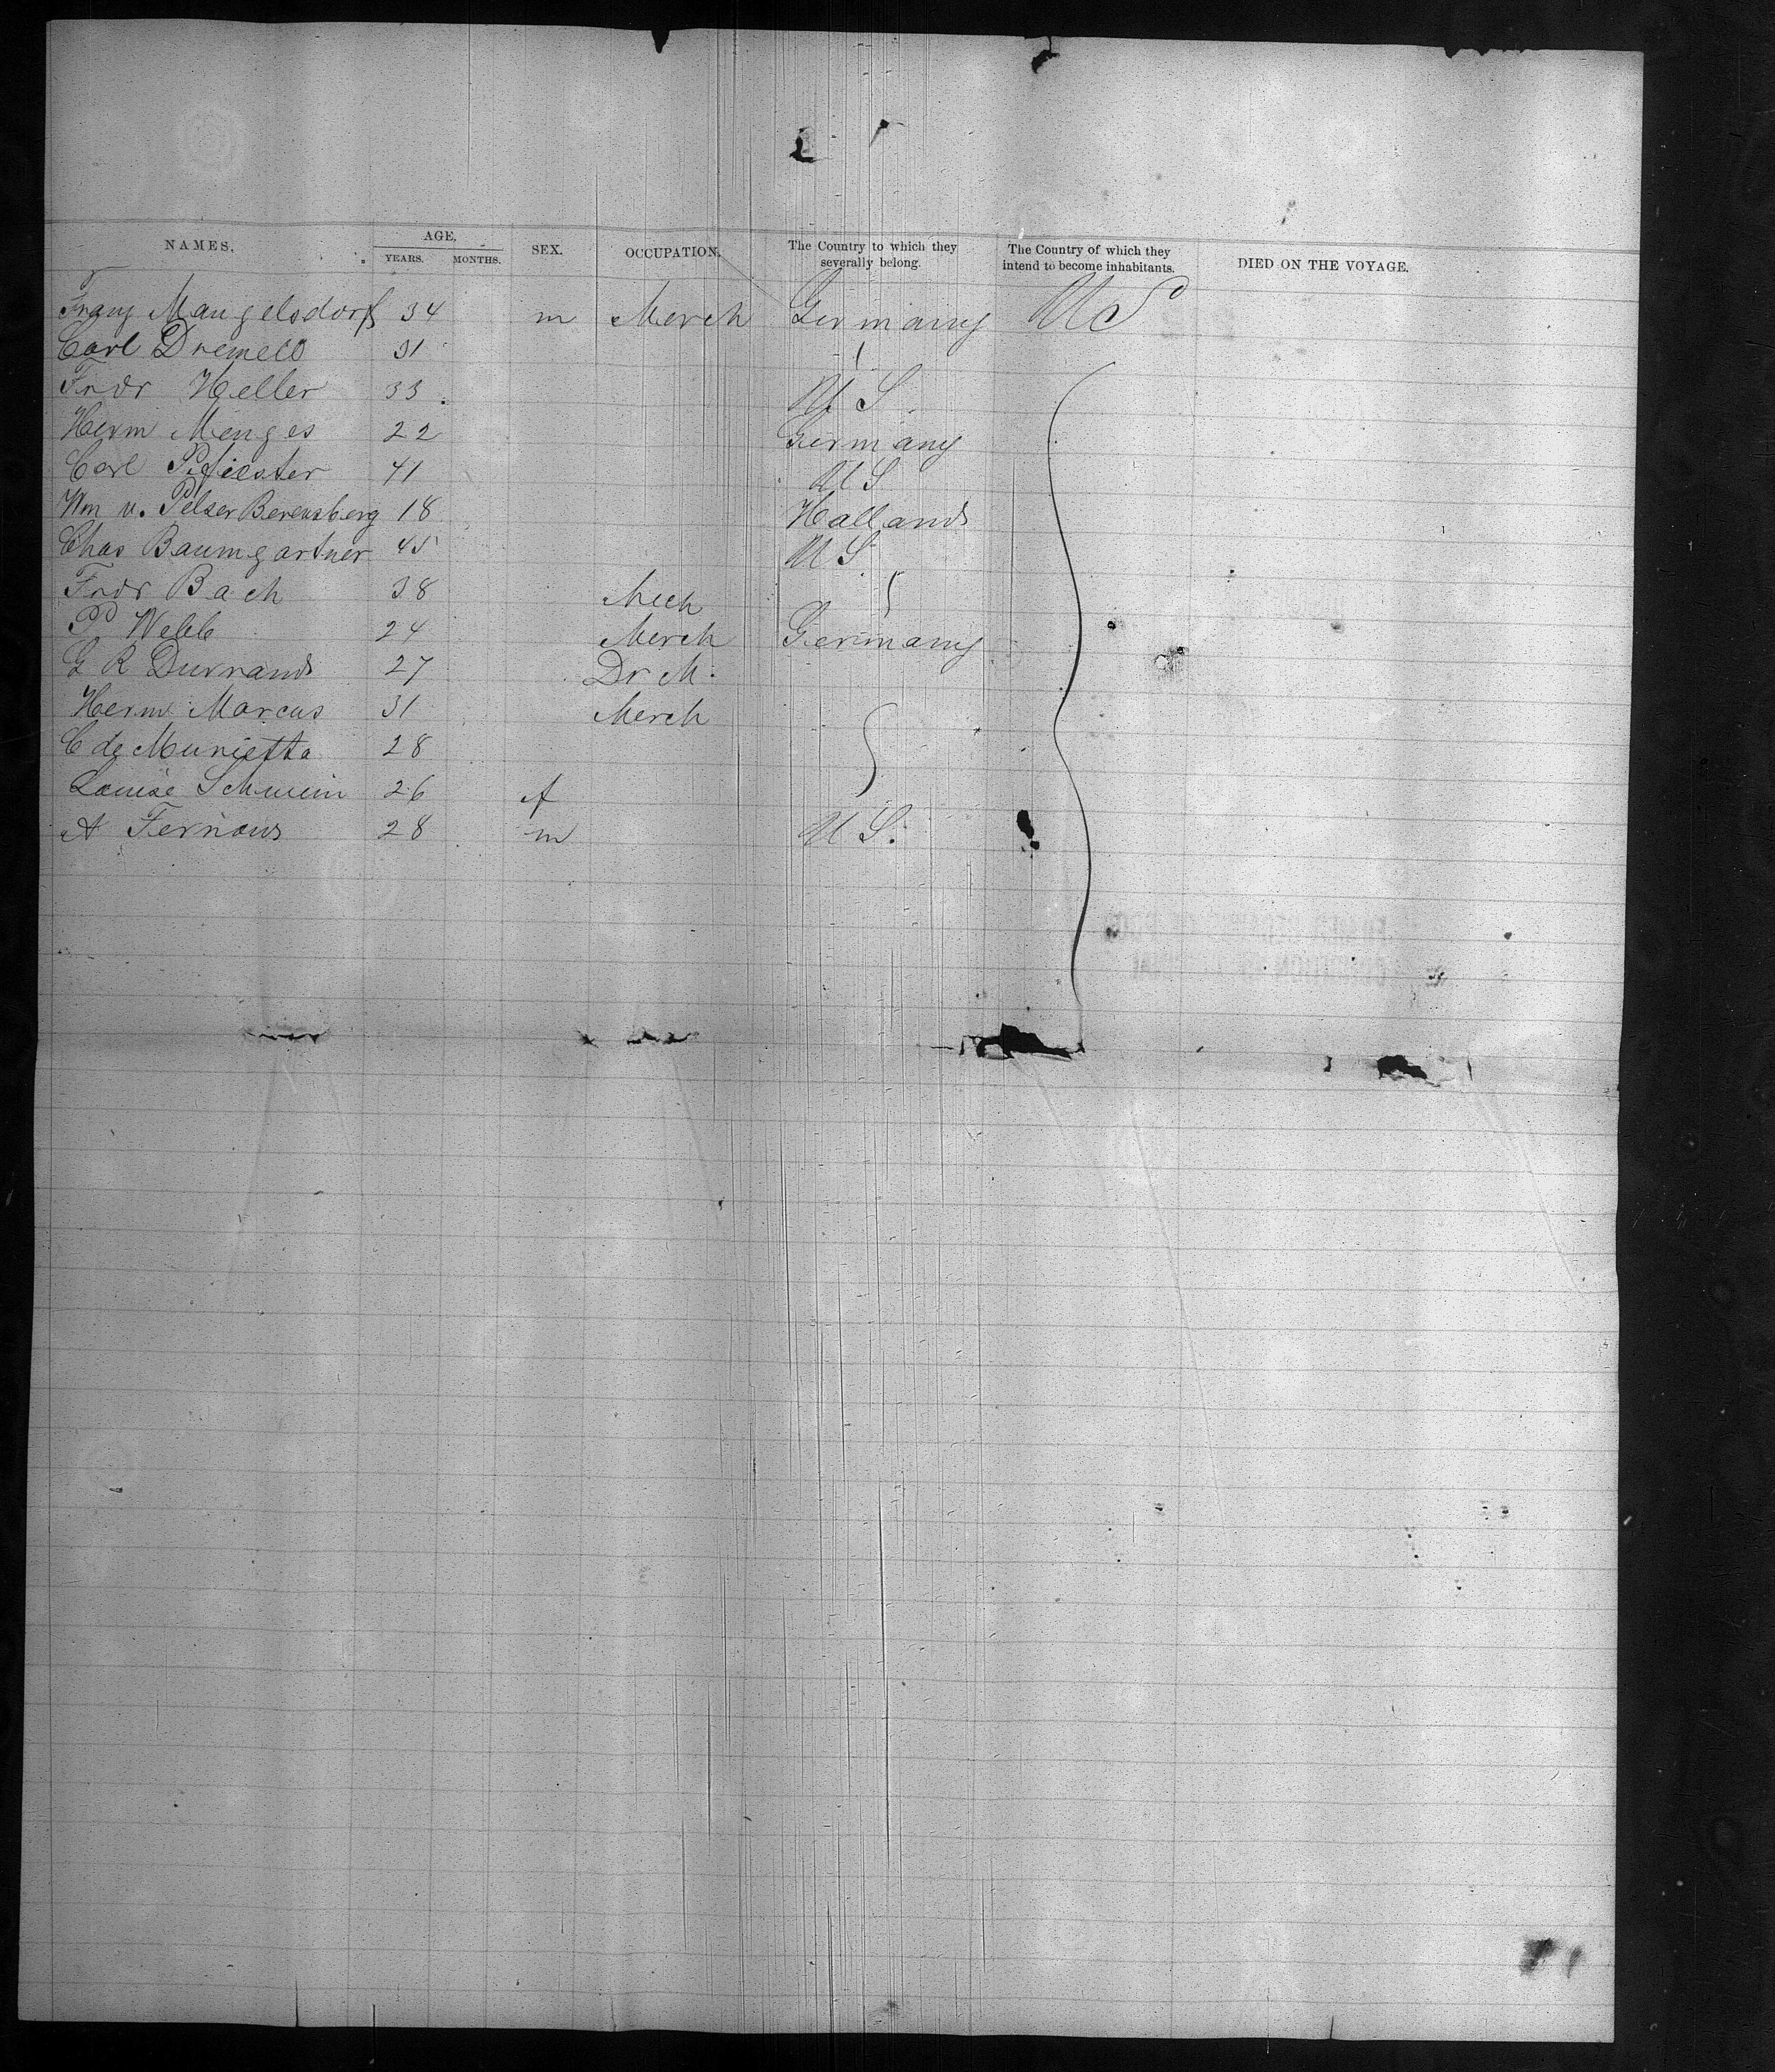 NAMES. AGE. SEX. OCCUPATION. The Country to which they severally belong. The Country of which they intend to become inhabitants. DIED ON THE VOYAGE.
YEARS. MONTHS.
Franz Mangelsdorf 34 m Merch Germany US
Carl 31
Fredr Heller 33 U S
Herm Menges 22 Germany
Carl Pfiester 41 U S
Wm v. Pelser Berensberg 18 Holland
Chas Baumgartner 45 U S
Fredr Bach 38 Mech
P Webb 24 Merch Germany
G R Durrand 27 Dr M.
Herm Marcus 31 Merch
C de Murietta 28
Louise 26 f
A 28 m U S.